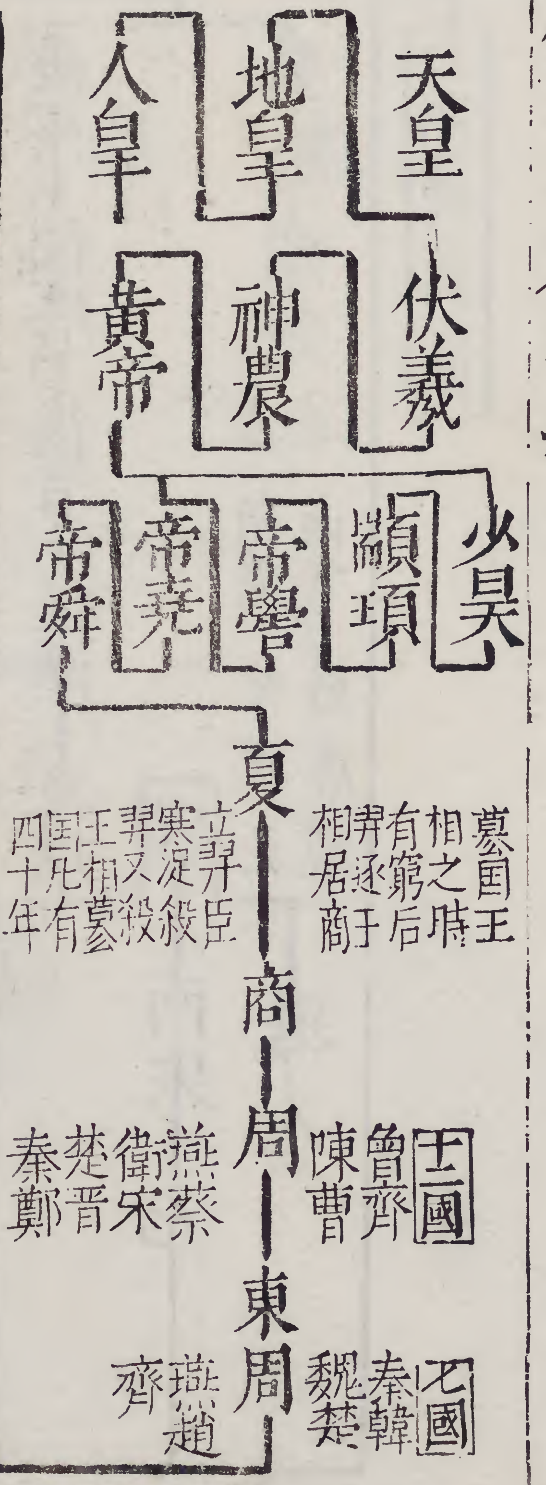 天皇
地皇
人皇
伏羲
神農
黃帝
少昊
顓頊
帝嚳
帝堯
帝舜
夏
墓国王
相之時
有窮后
羿逐于
相居商
立羿臣
寒浞殺
羿又殺
王相墓
国凡有
四十年
商
周
十二國
曾齊
陳曹
燕蔡
衛宋
楚晋
秦鄭
東周
七國
秦韓
魏楚
燕趙
齊